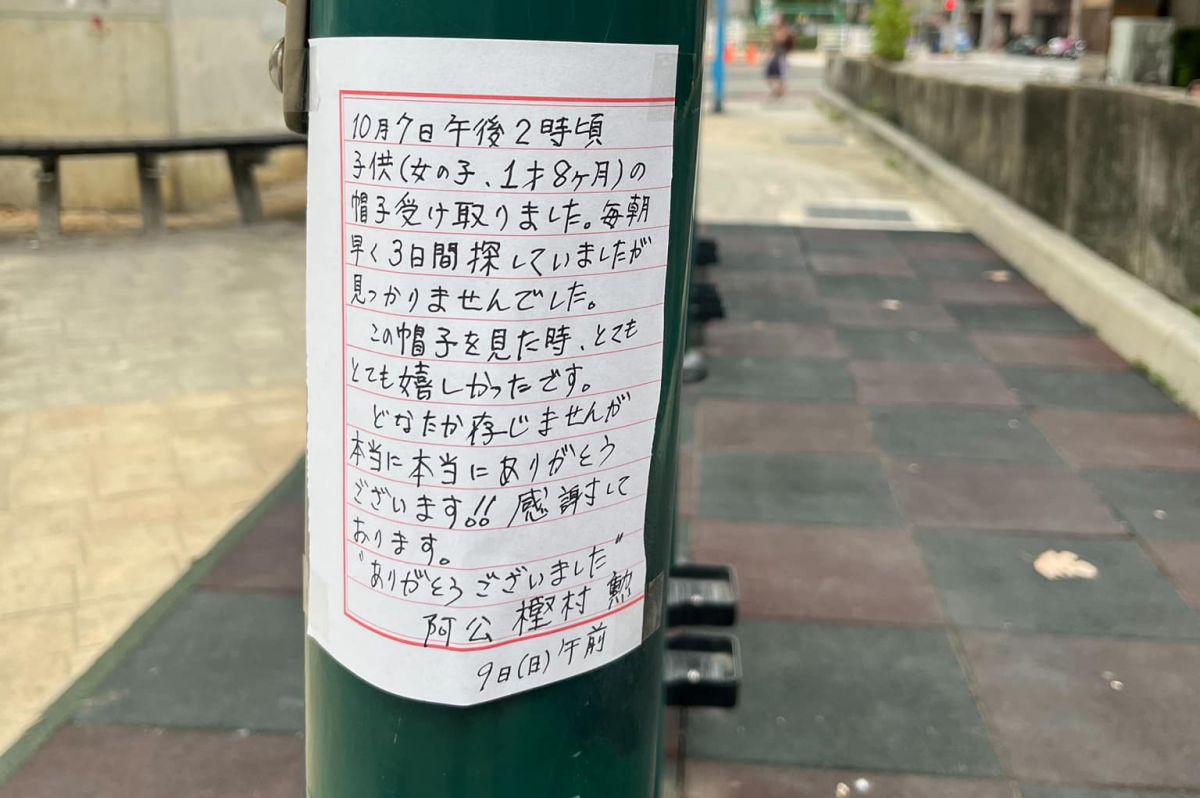 10月7日午後2時頃
子供(女の子、1才8ヶ月)の
帽子受け取りました。毎朝
早く3日間探していましたが
見つかりませんでした。
この帽子を見た時、とても
とても嬉しかったです。
どなたか存じませんが
本当に本当にありがとう
ございます!! 感謝して
おります。
“ありがとうございました”
阿公 樫村 勲
9日(日)午前